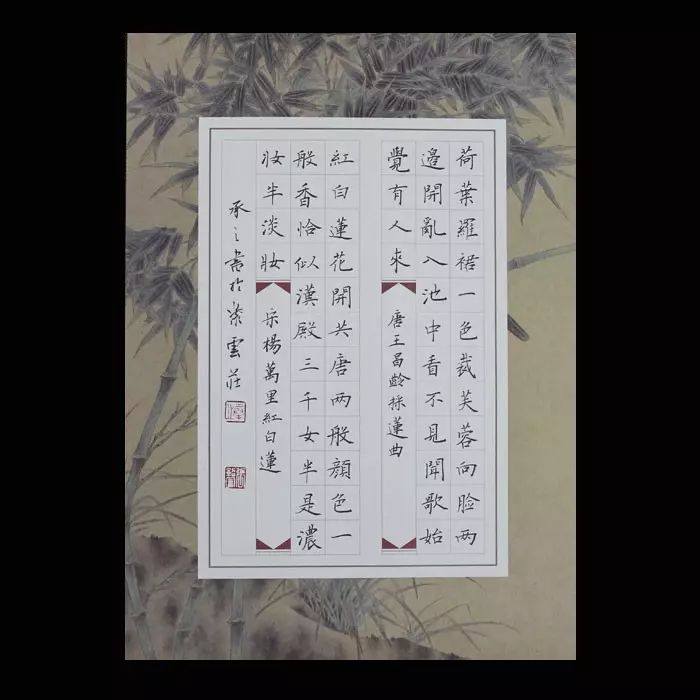 荷葉羅裙一色裁芙蓉向臉兩
邊開亂入池中看不見聞歌始
覺有人來
唐王昌齡採蓮曲
紅白蓮花開共唐兩般顏色一
般香恰似漢殿三千女半是濃
妆半淡妝
宋楊萬里紅白蓮
承之書於雲莊